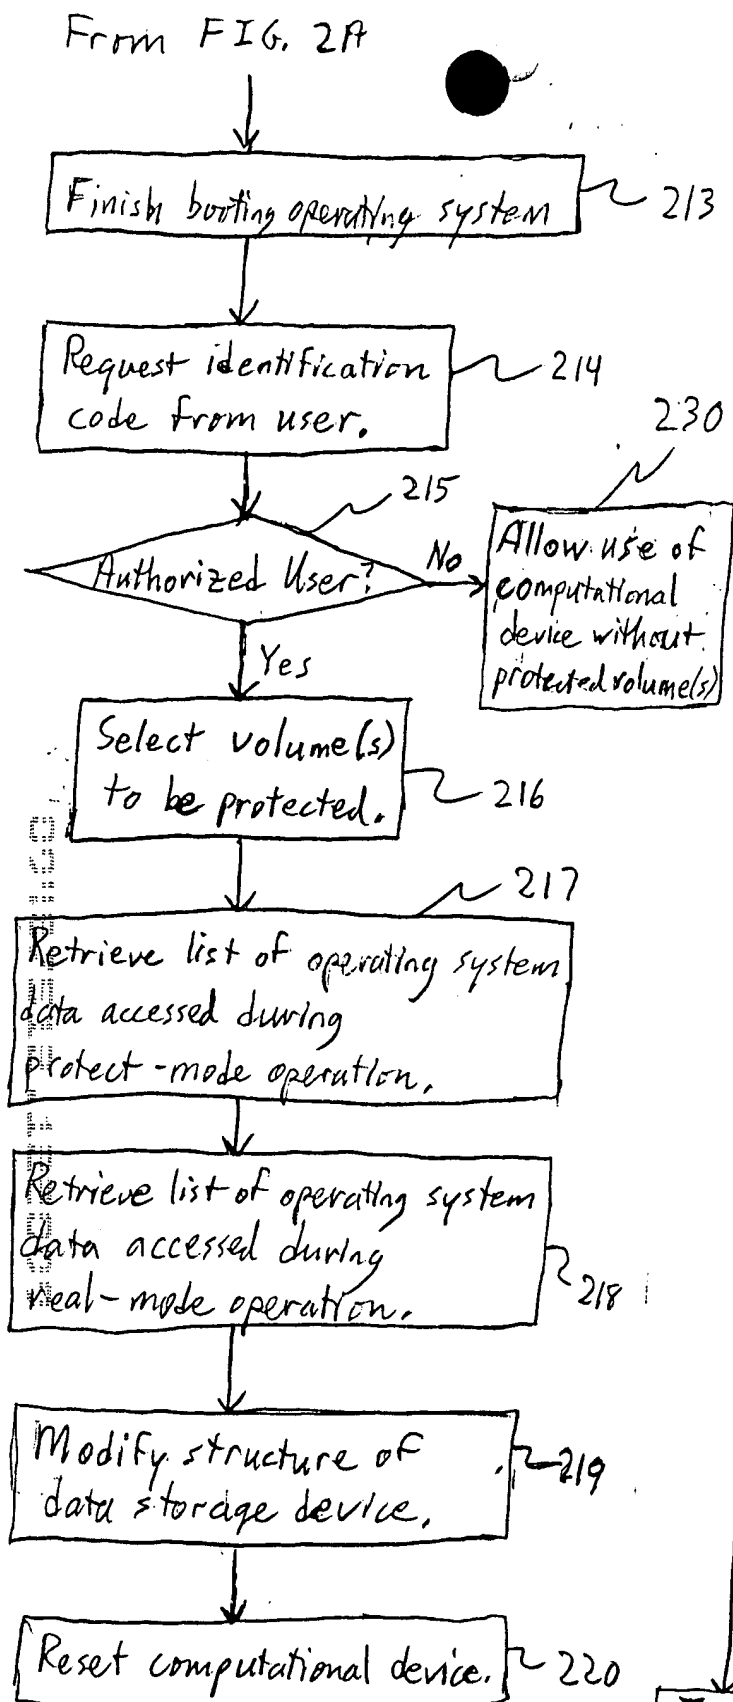 From FIG. 2A
Finish booting operating system
213
Request identification
code from user.
214
230
215
Authorized User?
No
Allow use of
computational
device without
protected volume(s)
Yes
Select volume(s)
to be protected.
216
217
Retrieve list of operating system
data accessed during
protect-mode operation.
Retrieve list of operating system
data accessed during
real-mode operation.
218
Modify structure of
data storage device.
219
Reset computational device.
220